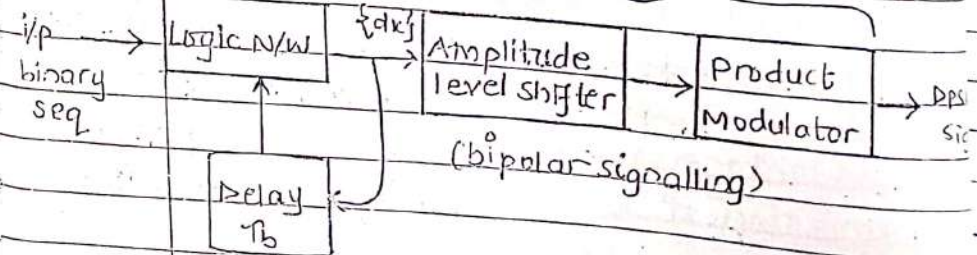 i/p
binary
seq
Logic N/W
{dk}
Amplitude
level shifter
Product
Modulator
(bipolar signalling)
Delay
Tb